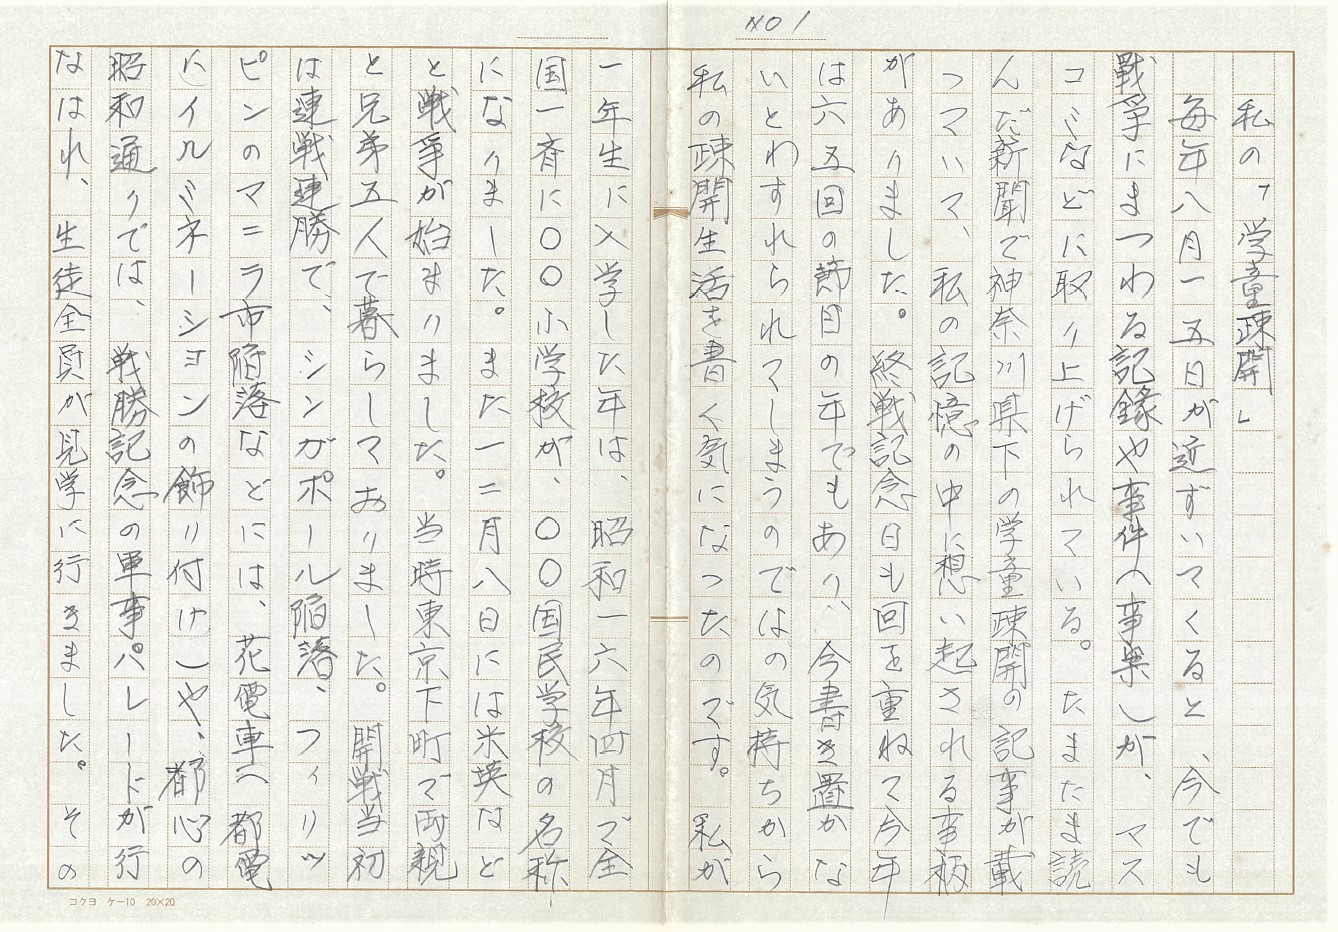 NO 1
私の「学童疎開」
毎年八月一五日が近ずいてくると、今でも
戦争にまつわる記録や事件(事案)が、マス
コミなどに取り上げられている。たまたま読
んだ新聞で神奈川県下の学童疎開の記事が載
っていて、私の記憶の中に想い起される事柄
がありました。終戦記念日も回を重ねて今年
は六五回の節目の年でもあり、今書き置かな
いとわすれられてしまうのではの気持ちから
私の疎開生活を書く気になったのです。私が
一年生に入学した年は、昭和一六年四月で全
国一斉に〇〇小学校が、〇〇国民学校の名称
になりました。また一二月八日には米英など
と戦争が始まりました。当時東京下町で両親
と兄弟五人で暮らしておりました。開戦当初
は連戦連勝で、シンガポール陥落、フィリッ
ピンのマニラ市陥落などには、花電車(都電
にイルミネーションの飾り付け)や、都心の
昭和通りでは、戦勝記念の軍事パレードが行
なはれ、生徒全員が見学に行きました。その
コクヨ ケー10 20×20